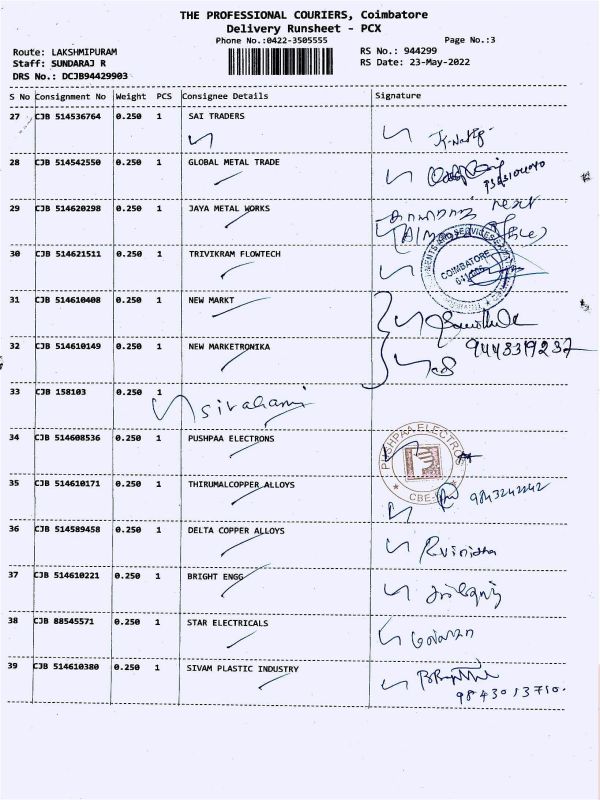 THE PROFESSIONAL COURIERS, Coimbatore
Delivery Runsheet - PCX
Phone No.:0422-3505555 Page No.:3
Route: LAKSHMIPURAM RS No.: 944299
Staff: SUNDARAJ R RS Date: 23-May-2022
DRS No.: DCJB94429903
S No Consignment No Weight PCS Consignee Details Signature
27 CJB 514536764 0.250 1 SAI TRADERS
28 CJB 514542550 0.250 1 GLOBAL METAL TRADE
29 CJB 514620298 0.250 1 JAYA METAL WORKS
next
30 CJB 514621511 0.250 1 TRIVIKRAM FLOWTECH
COIMBATORE
31 CJB 514610408 0.250 1 NEW MARKT
32 CJB 514610149 0.250 1 NEW MARKETRONIKA
9448319287
33 CJB 158103 0.250 1
sivahami
34 CJB 514608536 0.250 1 PUSHPAA ELECTRONS
PUSHPAA ELECTROS
CBE-
35 CJB 514610171 0.250 1 THIRUMALCOPPER ALLOYS
9843242242
36 CJB 514589458 0.250 1 DELTA COPPER ALLOYS
R.vinistha
37 CJB 514610221 0.250 1 BRIGHT ENGG
38 CJB 88545571 0.250 1 STAR ELECTRICALS
39 CJB 514610380 0.250 1 SIVAM PLASTIC INDUSTRY
9843013710.